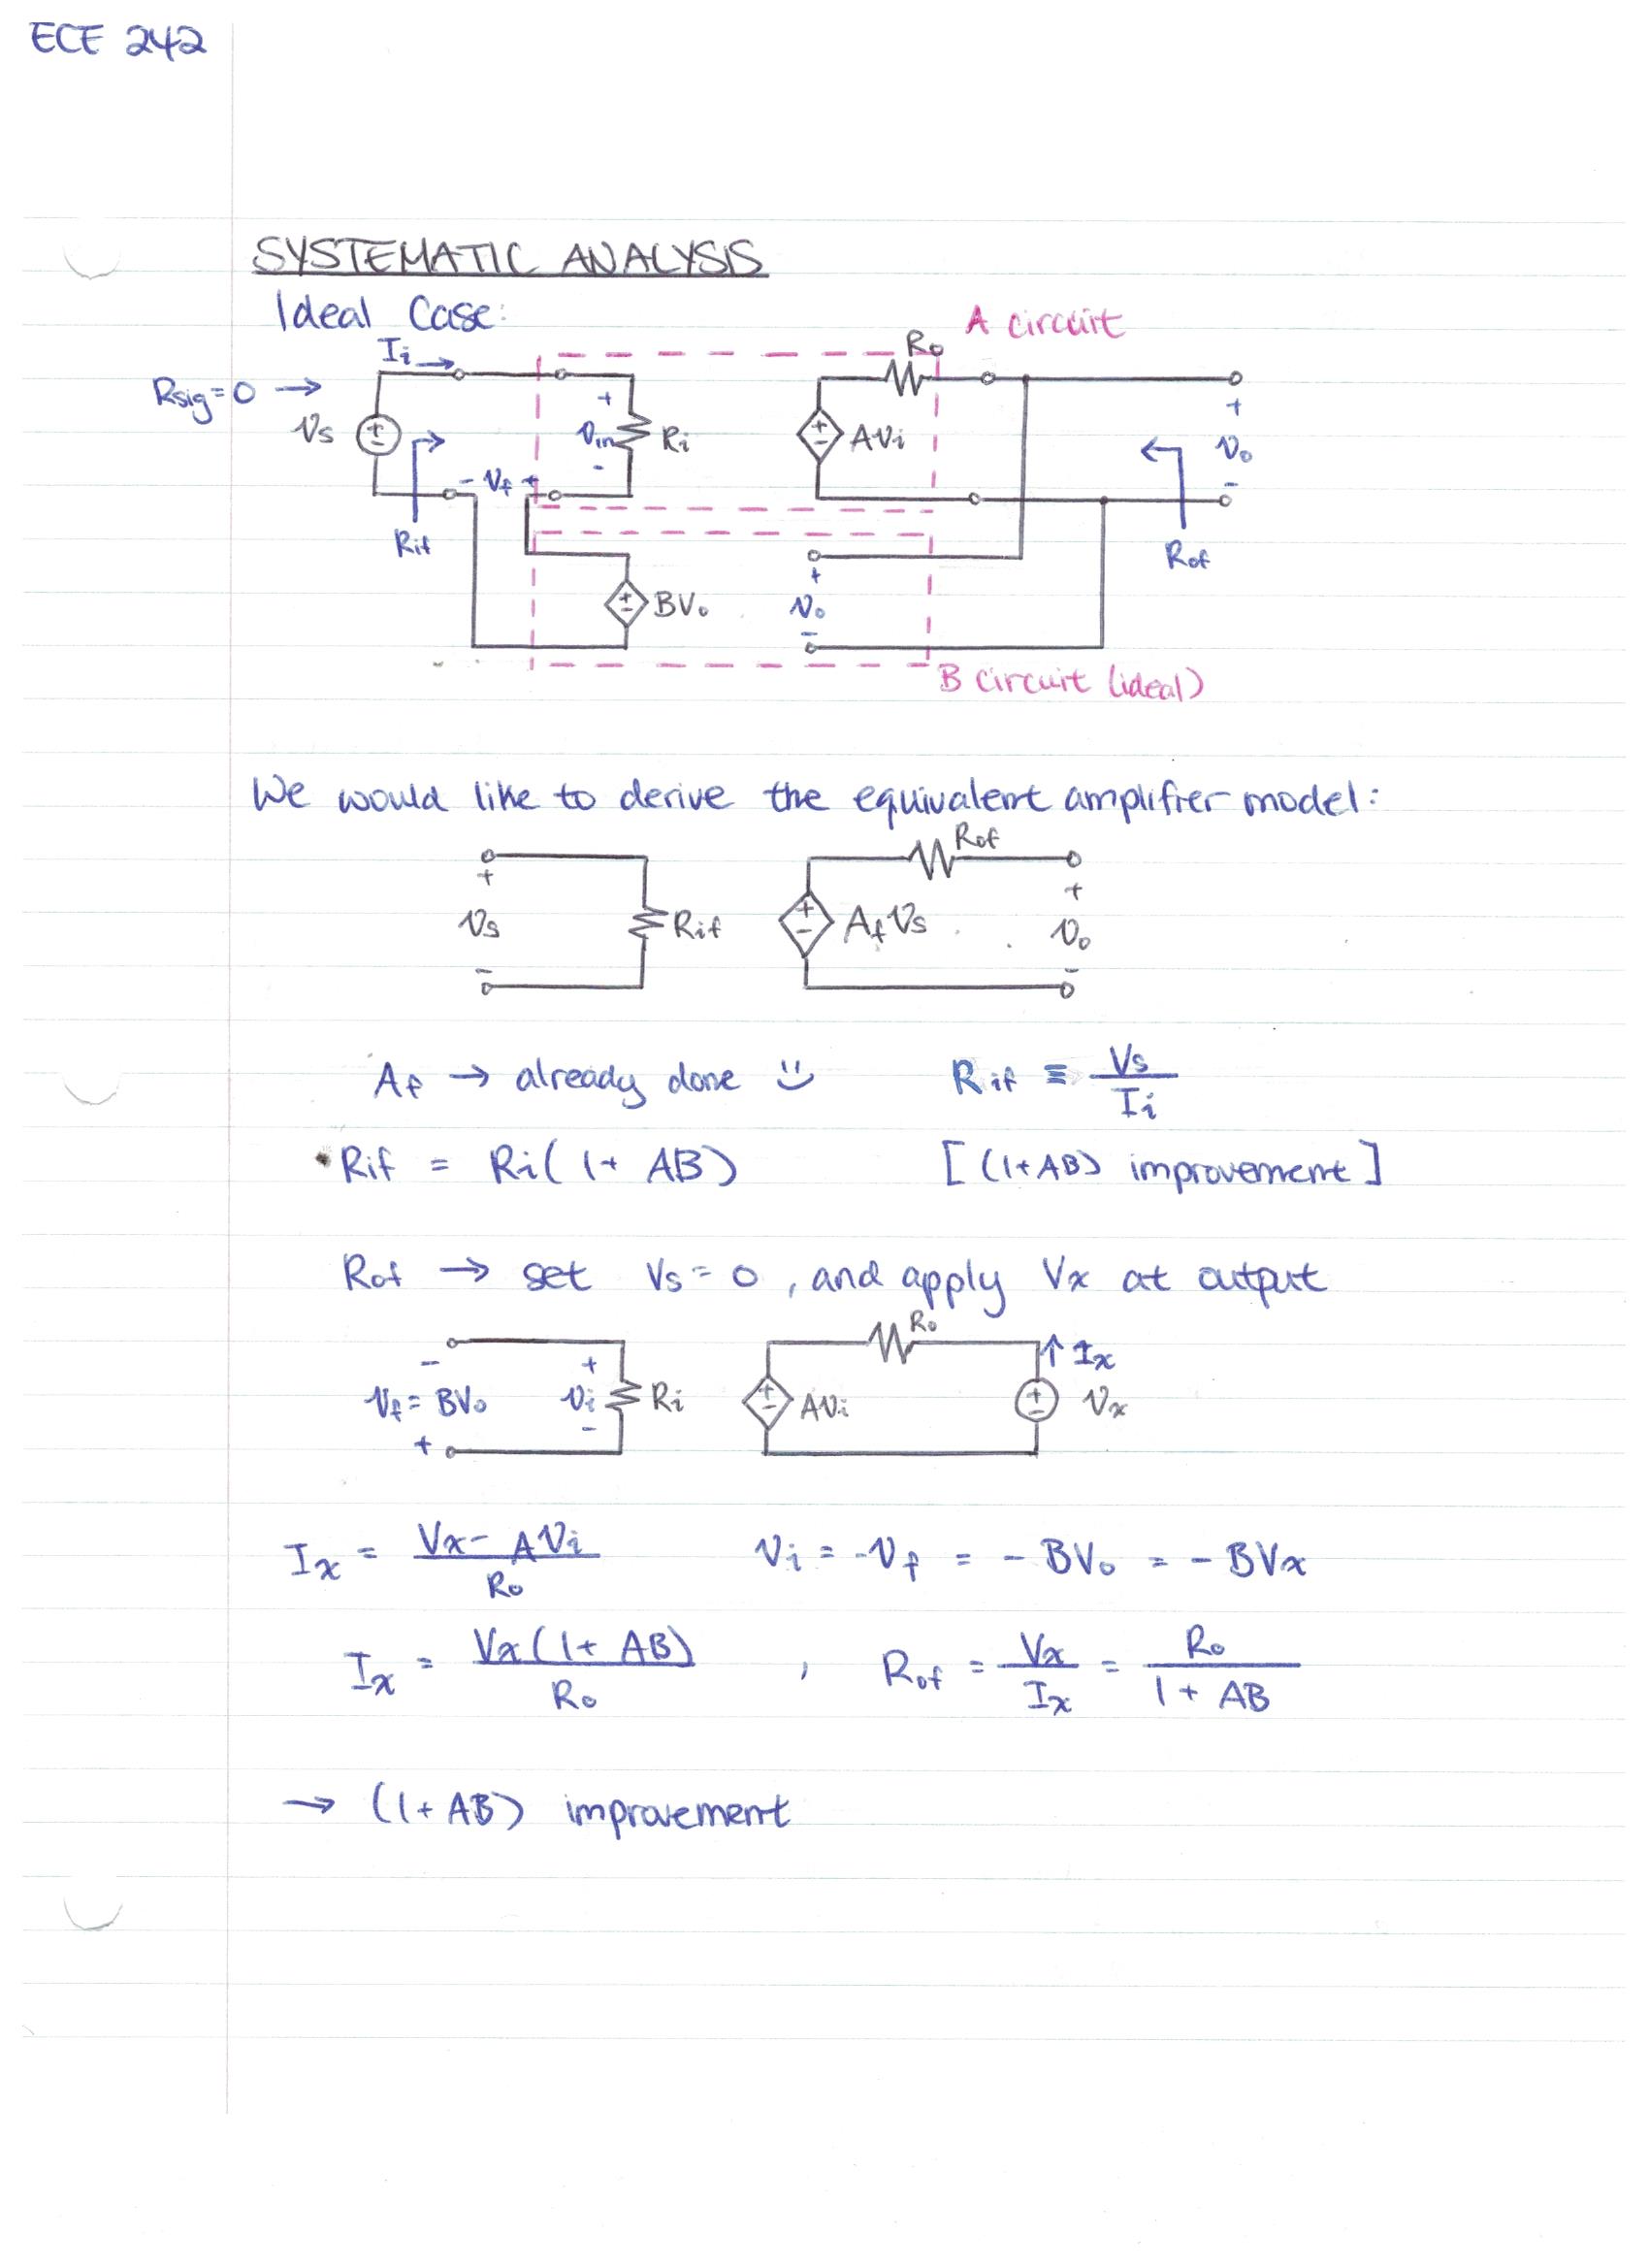 ECE 242
SYSTEMATIC ANALYSIS
Ideal Case:
A circuit
Ii →
Ro
Rsig = 0 →
Vs
+
Vin
-
Ri
AVi
+
Vo
-
- Vf +
Rif
Rof
BVo
+
Vo
-
B circuit (ideal)
We would like to derive the equivalent amplifier model:
Rof
+
Vs
-
Rif
AfVs
+
Vo
-
Af → already done Rif ≡ Vs/Ii
Rif = Ri(1+ AB) [(1+AB) improvement]
Rof → set Vs = 0, and apply Vx at output
Ro
↑ Ix
-
Vf = BVo
+
+
Vi
-
Ri
AVi
Vx
Ix = (Vx - AVi)/Ro Vi = -Vf = - BVo = - BVx
Ix = Vx(1+ AB)/Ro , Rof = Vx/Ix = Ro/(1+ AB)
→ (1+AB) improvement